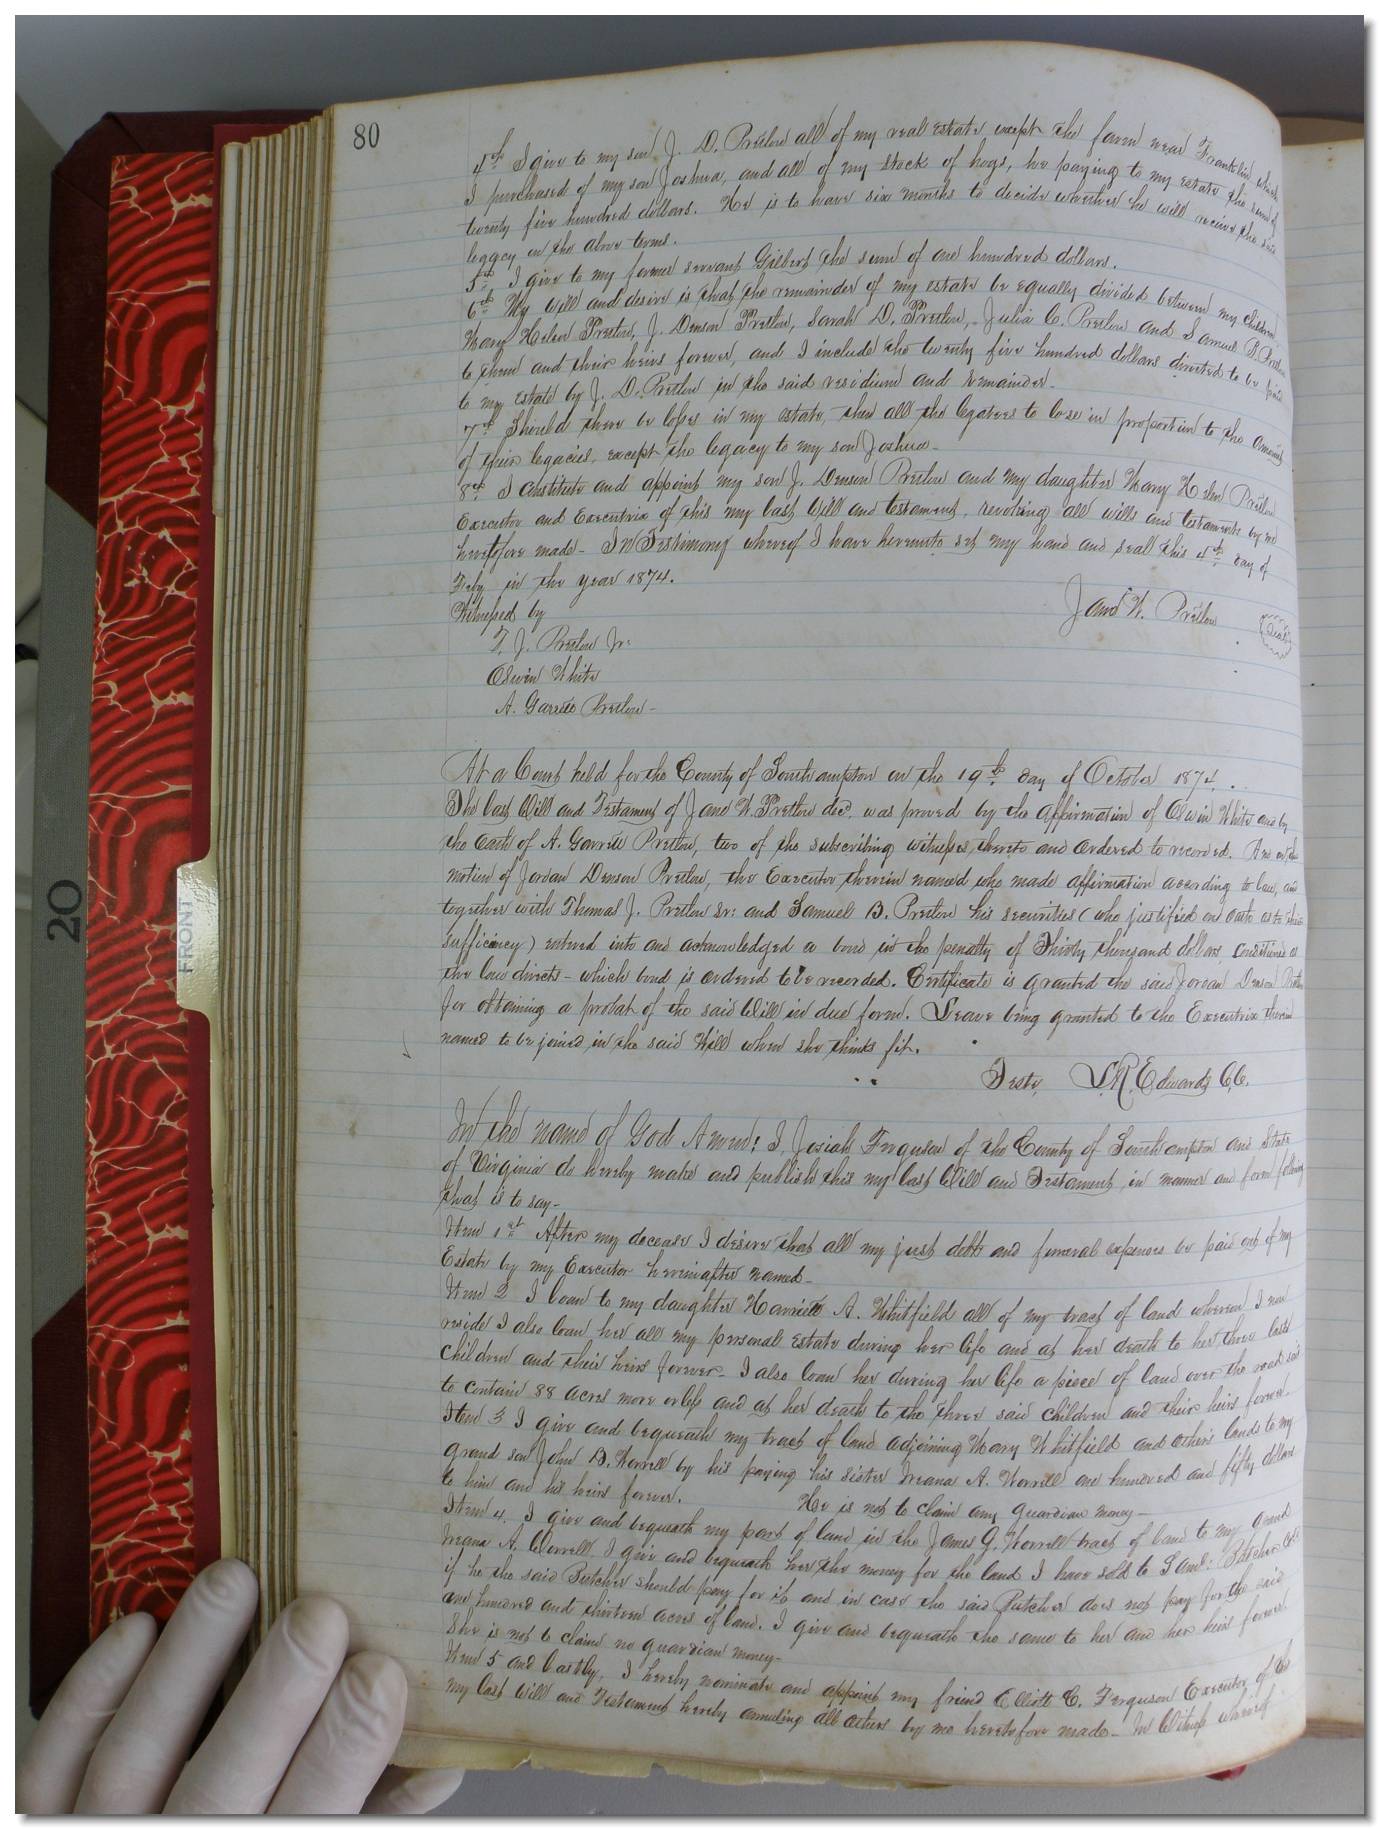 80
4th I give to my son J. D. Pretlow all of my real estate except the farm near Franklin which
I purchased of my son Joshua, and all of my stock of hogs, he paying to my estate the sum of
twenty five hundred dollars. He is to have six months to decide whether he will receive the said
legacy on the above terms.
5th I give to my former servant Gilbert the sum of one hundred dollars.
6th My will and desire is that the remainder of my estate be equally divided between my children
Mary Helen Pretlow, J. Denson Pretlow, Sarah D. Pretlow, Julia C. Pretlow and Samuel B. Pretlow
to them and their heirs forever, and I include the twenty five hundred dollars directed to be paid
to my estate by J. D. Pretlow in the said residium and remainder.
7th Should there be losses in my estate, then all the legatees to lose in proportion to the amount
of their legacies, except the legacy to my son Joshua.
8th I constitute and appoint my son J. Denson Pretlow and my daughter Mary Helen Pretlow
Executor and Executrix of this my last Will and testament, revoking all wills and testaments by me
heretofore made. In Testimony whereof I have hereunto set my hand and seal this 4th day of
in the year 1874.
Witnessed by
Jane W. Pretlow
Seal
T. J. Pretlow Jr.
Oswin White
A. Garrett Pretlow
At a Court held for the County of Southampton on the 19th day of October 1874.
The last Will and Testament of Jane W. Pretlow decd. was proved by the affirmation of Oswin White and by
the oath of A. Garrett Pretlow, two of the subscribing witnesses thereto and ordered to recorded. And on the
motion of Jordan Denson Pretlow, the Executor therein named who made affirmation according to law, and
together with Thomas J. Pretlow Sr. and Samuel B. Pretlow his securities (who justified on oath as to their
sufficiency) entered into and acknowledged a bond in the penalty of Thirty thousand dollars conditioned as
the law directs - which bond is ordered to be recorded. Certificate is granted the said Jordan Denson Pretlow
for obtaining a probat of the said Will in due form. Leave being granted to the Executrix therein
named to be joined in the said Will when she thinks fit.
Teste, L. R. Edwards C.C.
In the name of God Amen! I, Josiah Ferguson of the County of Southampton and State
of Virginia do hereby make and publish this my last Will and Testament, in manner and form following
that is to say.
Item 1st After my decease I desire that all my just debts and funeral expenses be paid out of my
Estate by my Executor hereinafter named.
Item 2 I loan to my daughter Harriett A. Whitfield all of my tract of land whereon I now
reside I also loan her all my personal Estate during her life and at her death to her three last
children and their heirs forever. I also loan her during her life a piece of land over the road said
to contain 88 acres more or less and at her death to the three said children and their heirs forever.
Item 3 I give and bequeath my tract of land adjoining Mary Whitfield and others lands to my
grand son John D. Worrell by his paying his sister A. Worrell one hundred and fifty dollars
to him and his heirs forever. He is not to claim any guardian money.
Item 4. I give and bequeath my part of land in the James G. Worrell tract of land to my grand
A. Worrell. I give and bequeath her the money for the land I have sold to Saml. Butcher
if he the said Butcher should pay for it and in case the said Butcher does not pay for the said
one hundred and thirteen acres of land. I give and bequeath the same to her and her heirs forever
She is not to claim no guardian money.
Item 5 and lastly, I hereby nominate and appoint my friend Elliott C. Ferguson Executor of this
my last will and Testament hereby annuling all others by me heretofore made. In Witness whereof
FRONT
20